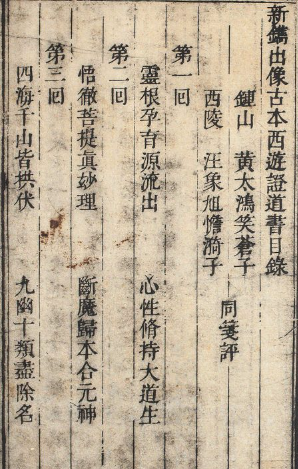 新鐫出像古本西遊證道書目錄
鍾山 黃太鴻笑蒼子
西陵 汪象旭憺漪子
同箋評
第一回
靈根孕育源流出 心性脩持大道生
第二回
悟徹菩提眞妙理 斷魔歸本合元神
第三回
四海千山皆拱伏 九幽十類盡除名